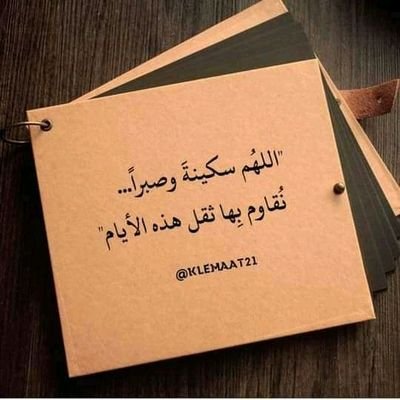 "اللهُم سكينةَ وصبراً...
نُقاوم بِها ثقل هذه الأيام"
@KLEMAAT21